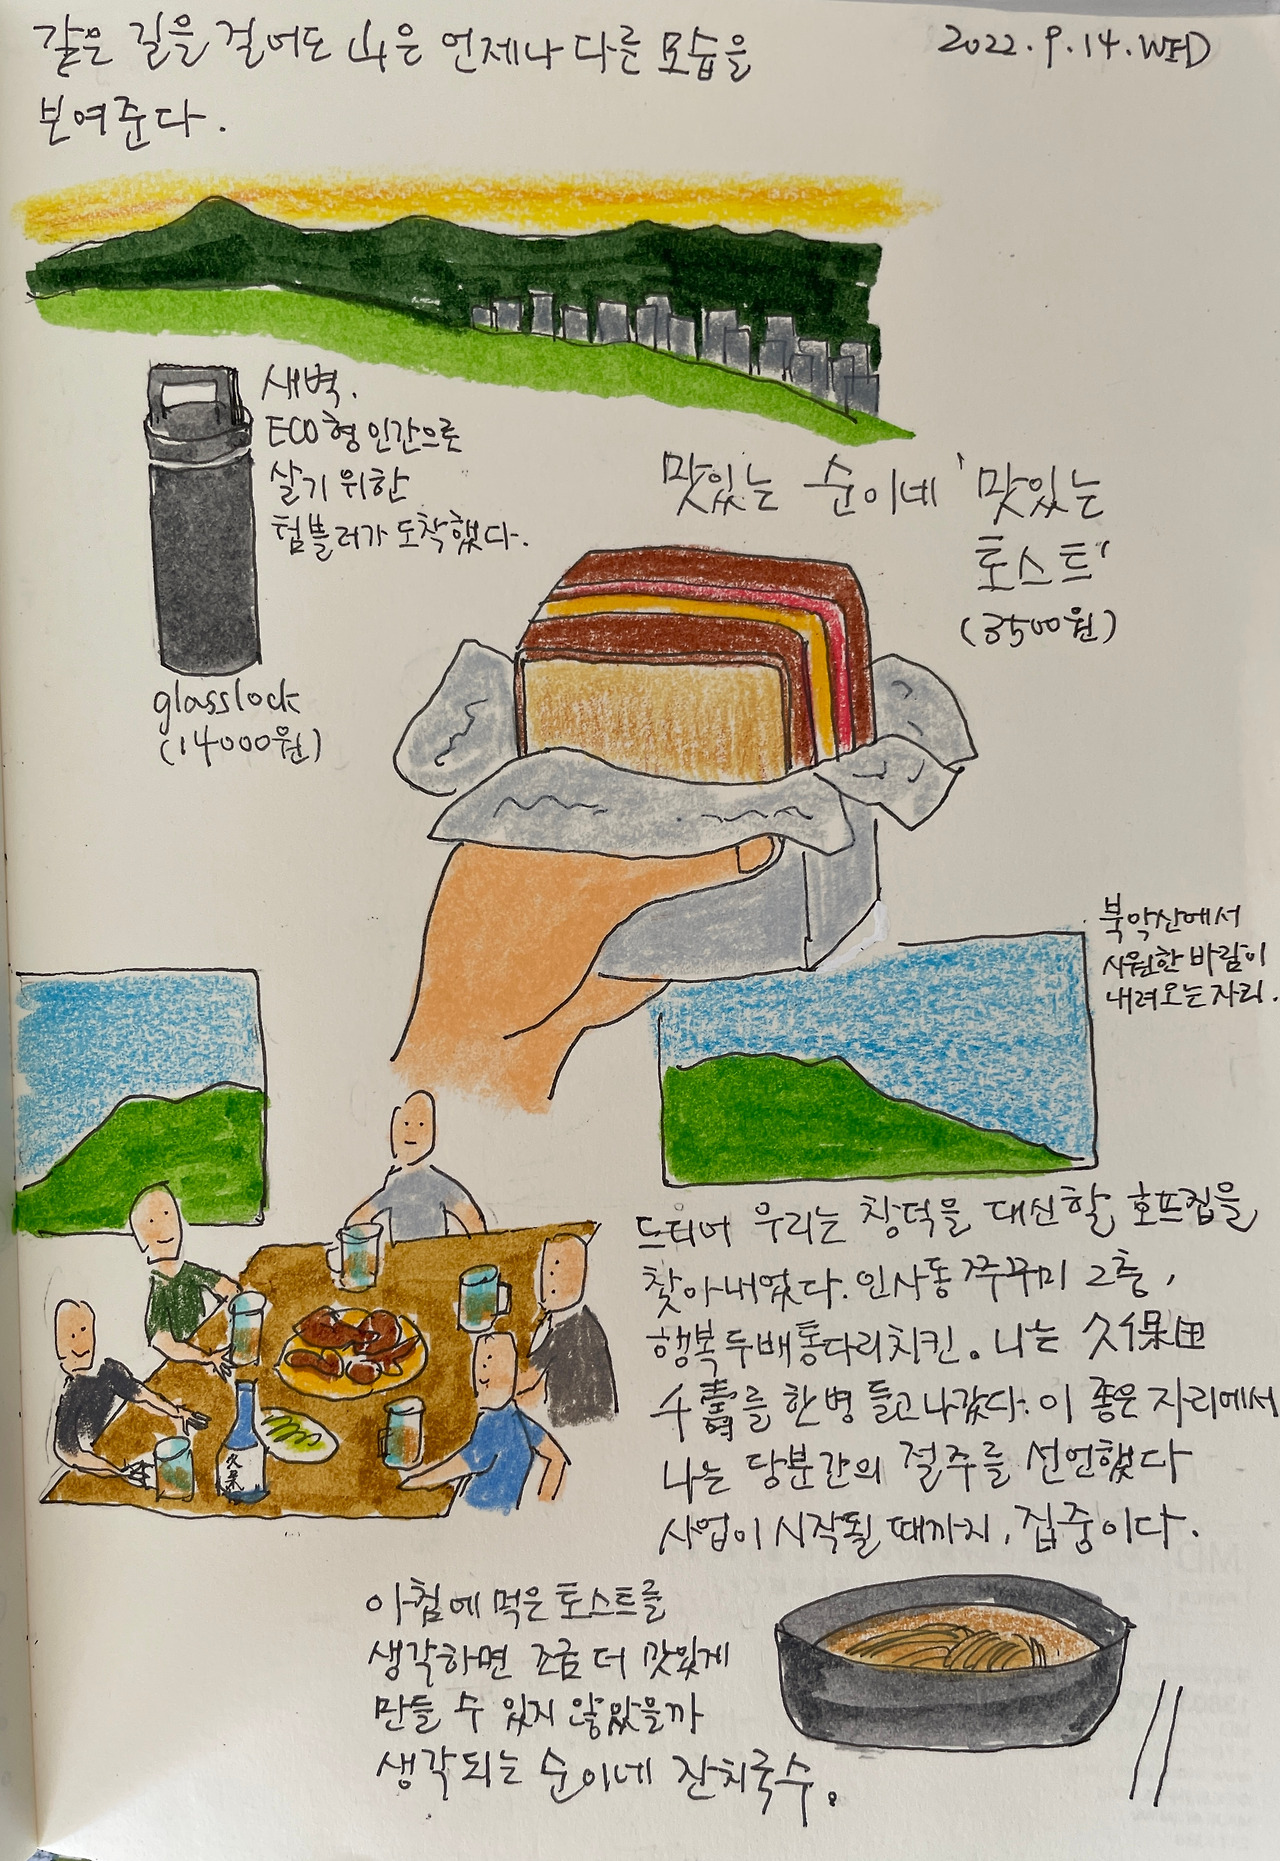 같은 길을 걸어도 山은 언제나 다른 모습을
보여준다.
2022.9.14.WED
새벽.
ECO형 인간으로
살기 위한
텀블러가 도착했다.
glasslock
(14000원)
맛있는 순이네 '맛있는
토스트'
(3500원)
북악산에서
시원한 바람이
내려오는 자리.
드디어 우리는 창덕을 대신할 호프집을
찾아내었다. 인사동 쭈꾸미 2층,
행복두배통다리치킨. 나는 久保田
壽를 한 병 들고 나갔다. 이 좋은 자리에서
나는 당분간의 절주를 선언했다
사업이 시작될 때까지, 집중이다.
久保
아침에 먹은 토스트를
생각하면 조금 더 맛있게
만들 수 있지 않았을까
생각되는 순이네 잔치국수.